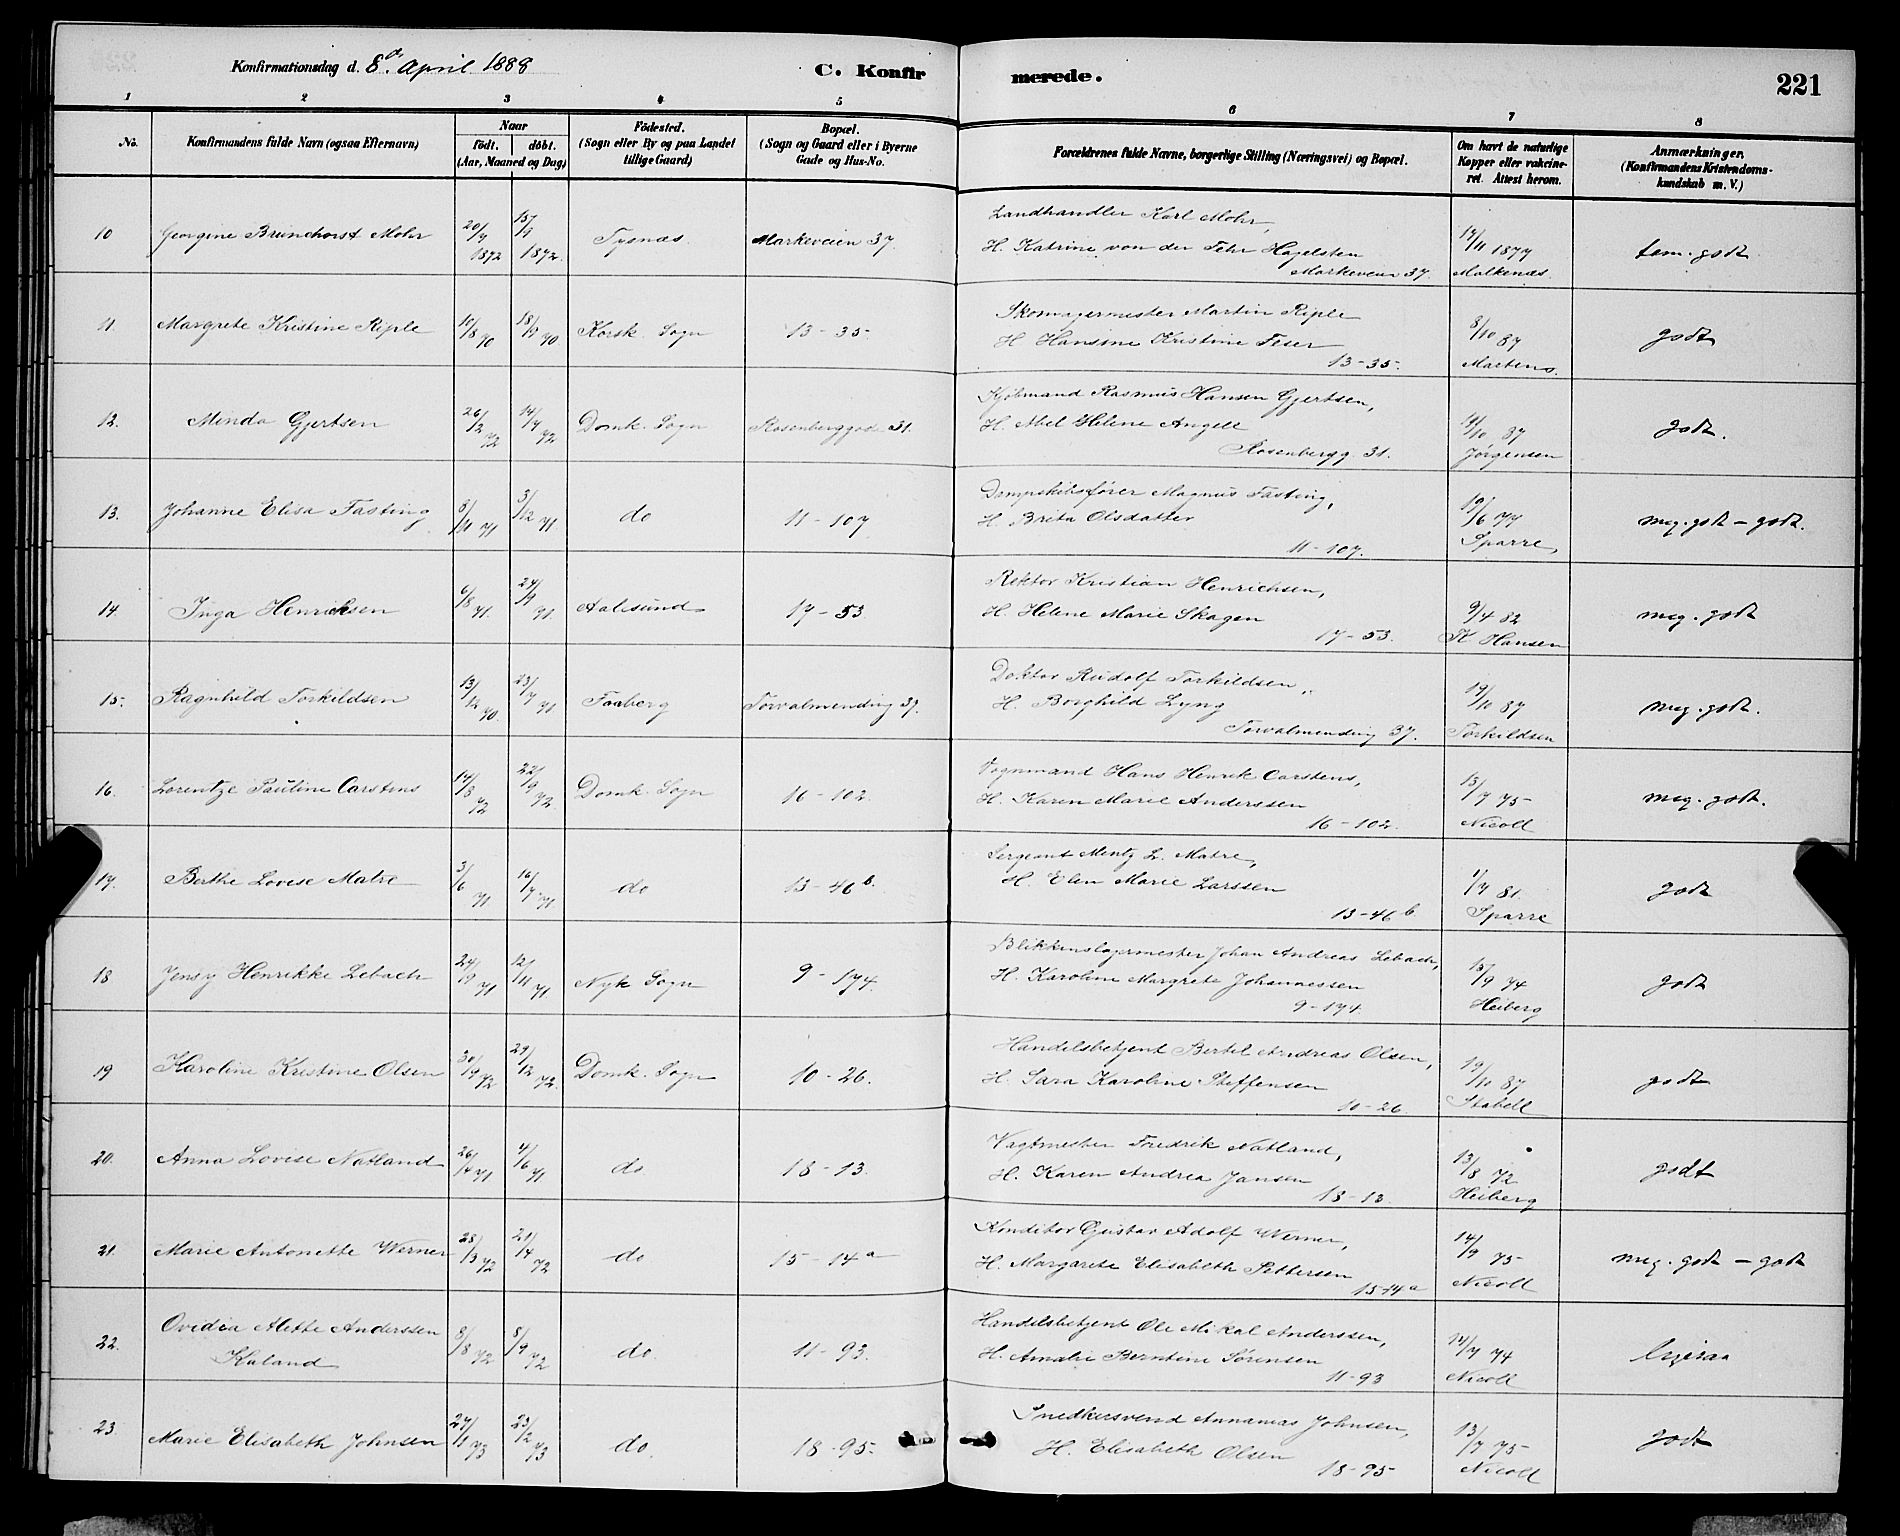 Konfirmationsdag d. 8de April 1888
C. Konfirmerede.
221
1 2 3 4 5 6 7 8
No.
Konfirmandens fulde Navn (ogsaa Efternavn)
Naar
födt. döbt.
(Aar, Maaned og Dag)
Födested.
(Sogn eller By og paa Landet
tillige Gaard)
Bopæl.
(Sogn og Gaard eller i Byerne
Gade og Hus-No.
Forældrenes fulde Navne, borgerlige Stilling (Næringsvei) og Bopæl.
Om havt de naturlige
Kopper eller vakcine-
ret. Attest herom.
Anmærkninger.
(Konfirmandens Kristendoms-
kundskab m. V.)
10 Georgine Brunchorst Mohr 20/7 1872 1872. Tysnæs. Markeveien 37.
Landhandler Karl Mohr,
H. Katrine von der Fehr Hagelsten
Markeveien 37.
1877
tem. godt
11. Margrete Kristine Riple 10/8 70 18/9 70 Korsk. Sogn 13-35
Skomagermester Martin Riple
H. Hansine Kristine Feser
13-35.
8/10 87
Martens.
godt
12. Minda Gjertsen 26/2 72 14/4 72 Domk. Sogn Rosenberggade 31.
Kjøbmand Rasmus Hansen Gjertsen,
H. Abel Helene Angell
Rosenbergg 31.
19/10 87
Jørgensen
godt.
13. Johanne Elisa Fasting 8/11 71 3/12 71. do 11-107
Dampskibsfører Magnus Fasting,
H. Brita Olsdatter
11-107.
19/6 77
Sparre,
meg. godt - godt.
14 Inga Henriksen 6/8 71. 71. Aalesund 17-53.
Rektor Kristian Henrichsen,
H. Helene Marie Skagen
17-53.
9/4 82
K Hansen
meg. godt
15. Ragnhild Torkildsen 13/12 70. 23/7 71 Faaberg Torvalmending 37.
Doktor Rudolf Torkildsen,
H. Borghild Lyng
Torvalmending 37.
19/10 87
Torkildsen
meg. godt.
16. Lorentze Pauline Carstens 14/8 72 22/9 72. Domk. Sogn 16-102.
Vognmand Hans Henrik Carstens,
H. Karen Marie Anderssen
16-102.
13/7 75
Nicoll
meg. godt.
17. Berthe Lovise Matre 3/6 71 16/7 71 do 13-46 b.
Sergeant Mentz L. Matre,
H. Elen Marie Larssen
13-46 b
1/7 81.
Sparre
godt
18 Jensy Henrikke Lebach 24/9 71 12/11 71. Nyk Sogn 9-174.
Blikkenslagermester Johan Andreas Lebach,
H. Karoline Margrete Johannessen
9-174.
15/9 74
Heiberg
godt
19 Karoline Kristine Olsen 30/9 72 29/12 72. Domk. Sogn 10-26.
Handelsbetjent Bertel Andreas Olsen,
H. Sara Karoline Steffensen
10-26
19/10 87
Stabell
godt
20. Anna Lovise Natland 26/4 71 4/6 71 do 18-13.
Vagtmester Fredrik Natland,
H. Karen Andrea Jansen
18-13.
13/8 72
Heiberg
godt
21. Marie Antonette Werner 28/3 72 21/4 72 do 15-14 a
Konditor Gustav Adolf Werner,
H. Margarete Elisabeth Pettersen
15-14 a
14/9 75
Nicoll
meg. godt - godt
22. Ovidia Alette Anderssen
Kaland 8/8 72 8/9 72 do. 11-93.
Handelsbetjent Ole Mikal Anderssen,
H. Amalie Berntine Sørensen
11-93
74
Nicoll
ligesaa
23 Marie Elisabeth Johnsen 27/1 73 23/2 73 do. 18-95.
Snedkersvend Annanias Johnsen,
H. Elisabeth Olsen
18-95
13/7 75
Nicoll
godt